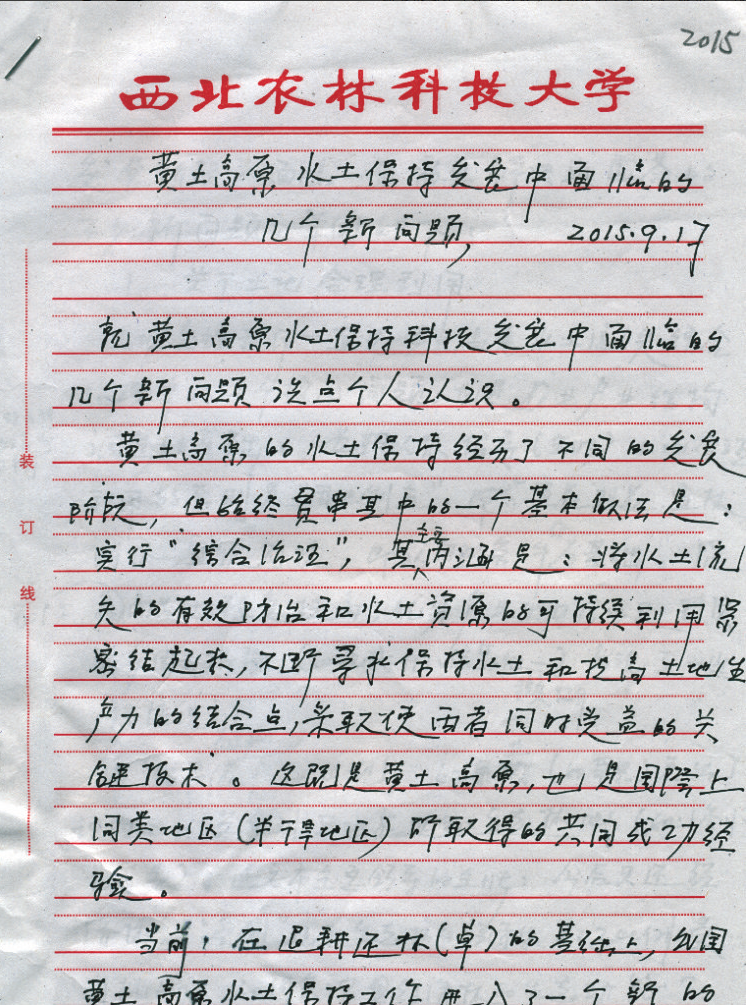 2015
西北农林科技大学
黄土高原水土保持发展中面临的
几个新问题 2015.9.17
就黄土高原水土保持科技发展中面临的
几个新问题谈点个人认识。
黄土高原的水土保持经历了不同的发展
阶段，但始终贯串其中的一个基本做法是：
实行“综合治理”，其主要内涵是：将水土流
失的有效防治和水土资源的可持续利用紧
密结起来，不断寻求保持水土和提高土地生
产力的结合点，采取使两者同时受益的关
键技术。这既是黄土高原，也是国际上
同类地区（半干旱地区）所取得的共同成功经
验。
当前，在退耕还林（草）的基础上，我国
黄土高原水土保持工作进入了一个新的
装
订
线